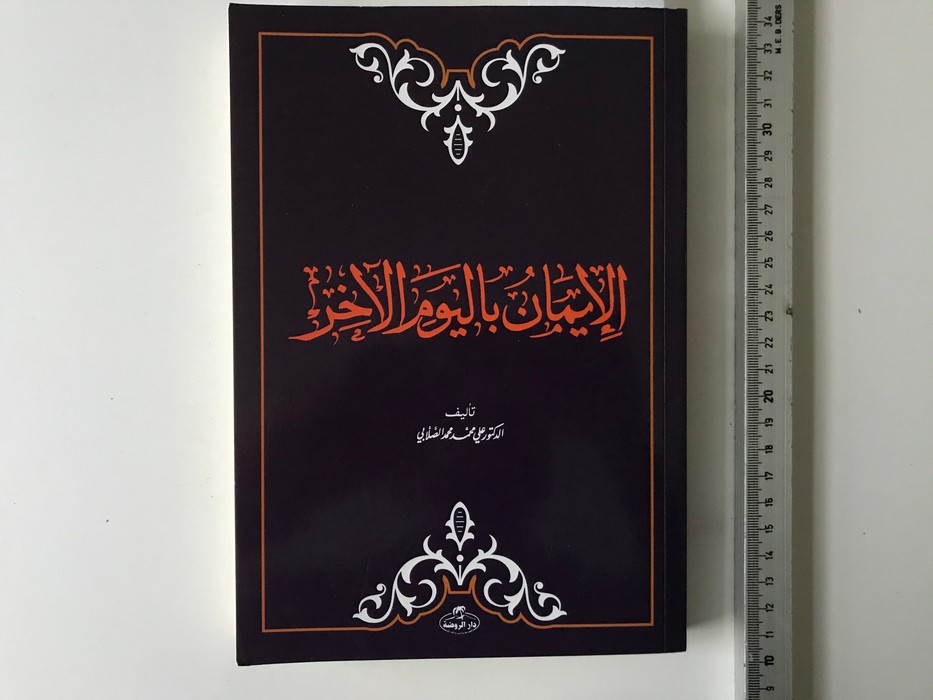 الإِيمَانُ بِاليَومِ الآخِرِ
تأليف
الدكتور علي محمد محمد الصلابي
دار الروضة
M.E.B. DERS
34
33
32
31
30
29
28
27
26
25
24
23
22
21
20
19
18
17
16
15
14
13
12
11
10
9